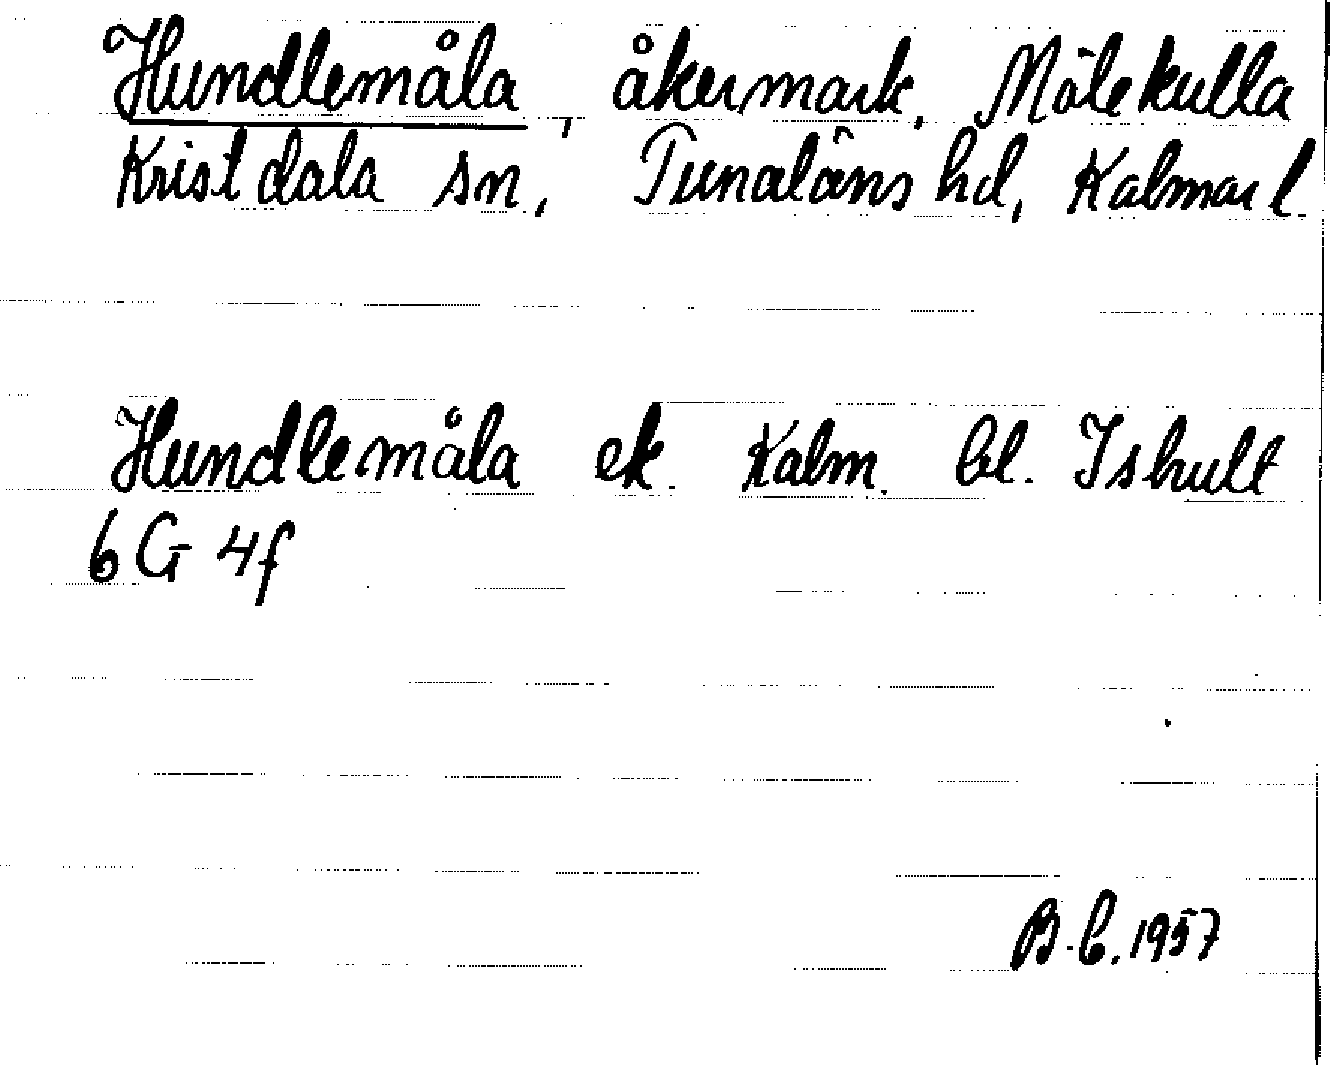 Hundlemåla, åkermark, Mölekulla
Kristdala sn, Tunaläns hd, Kalmar l.
Hundlemåla ek. Kalm. bl. Ishult
6G 4f
B.C. 1957